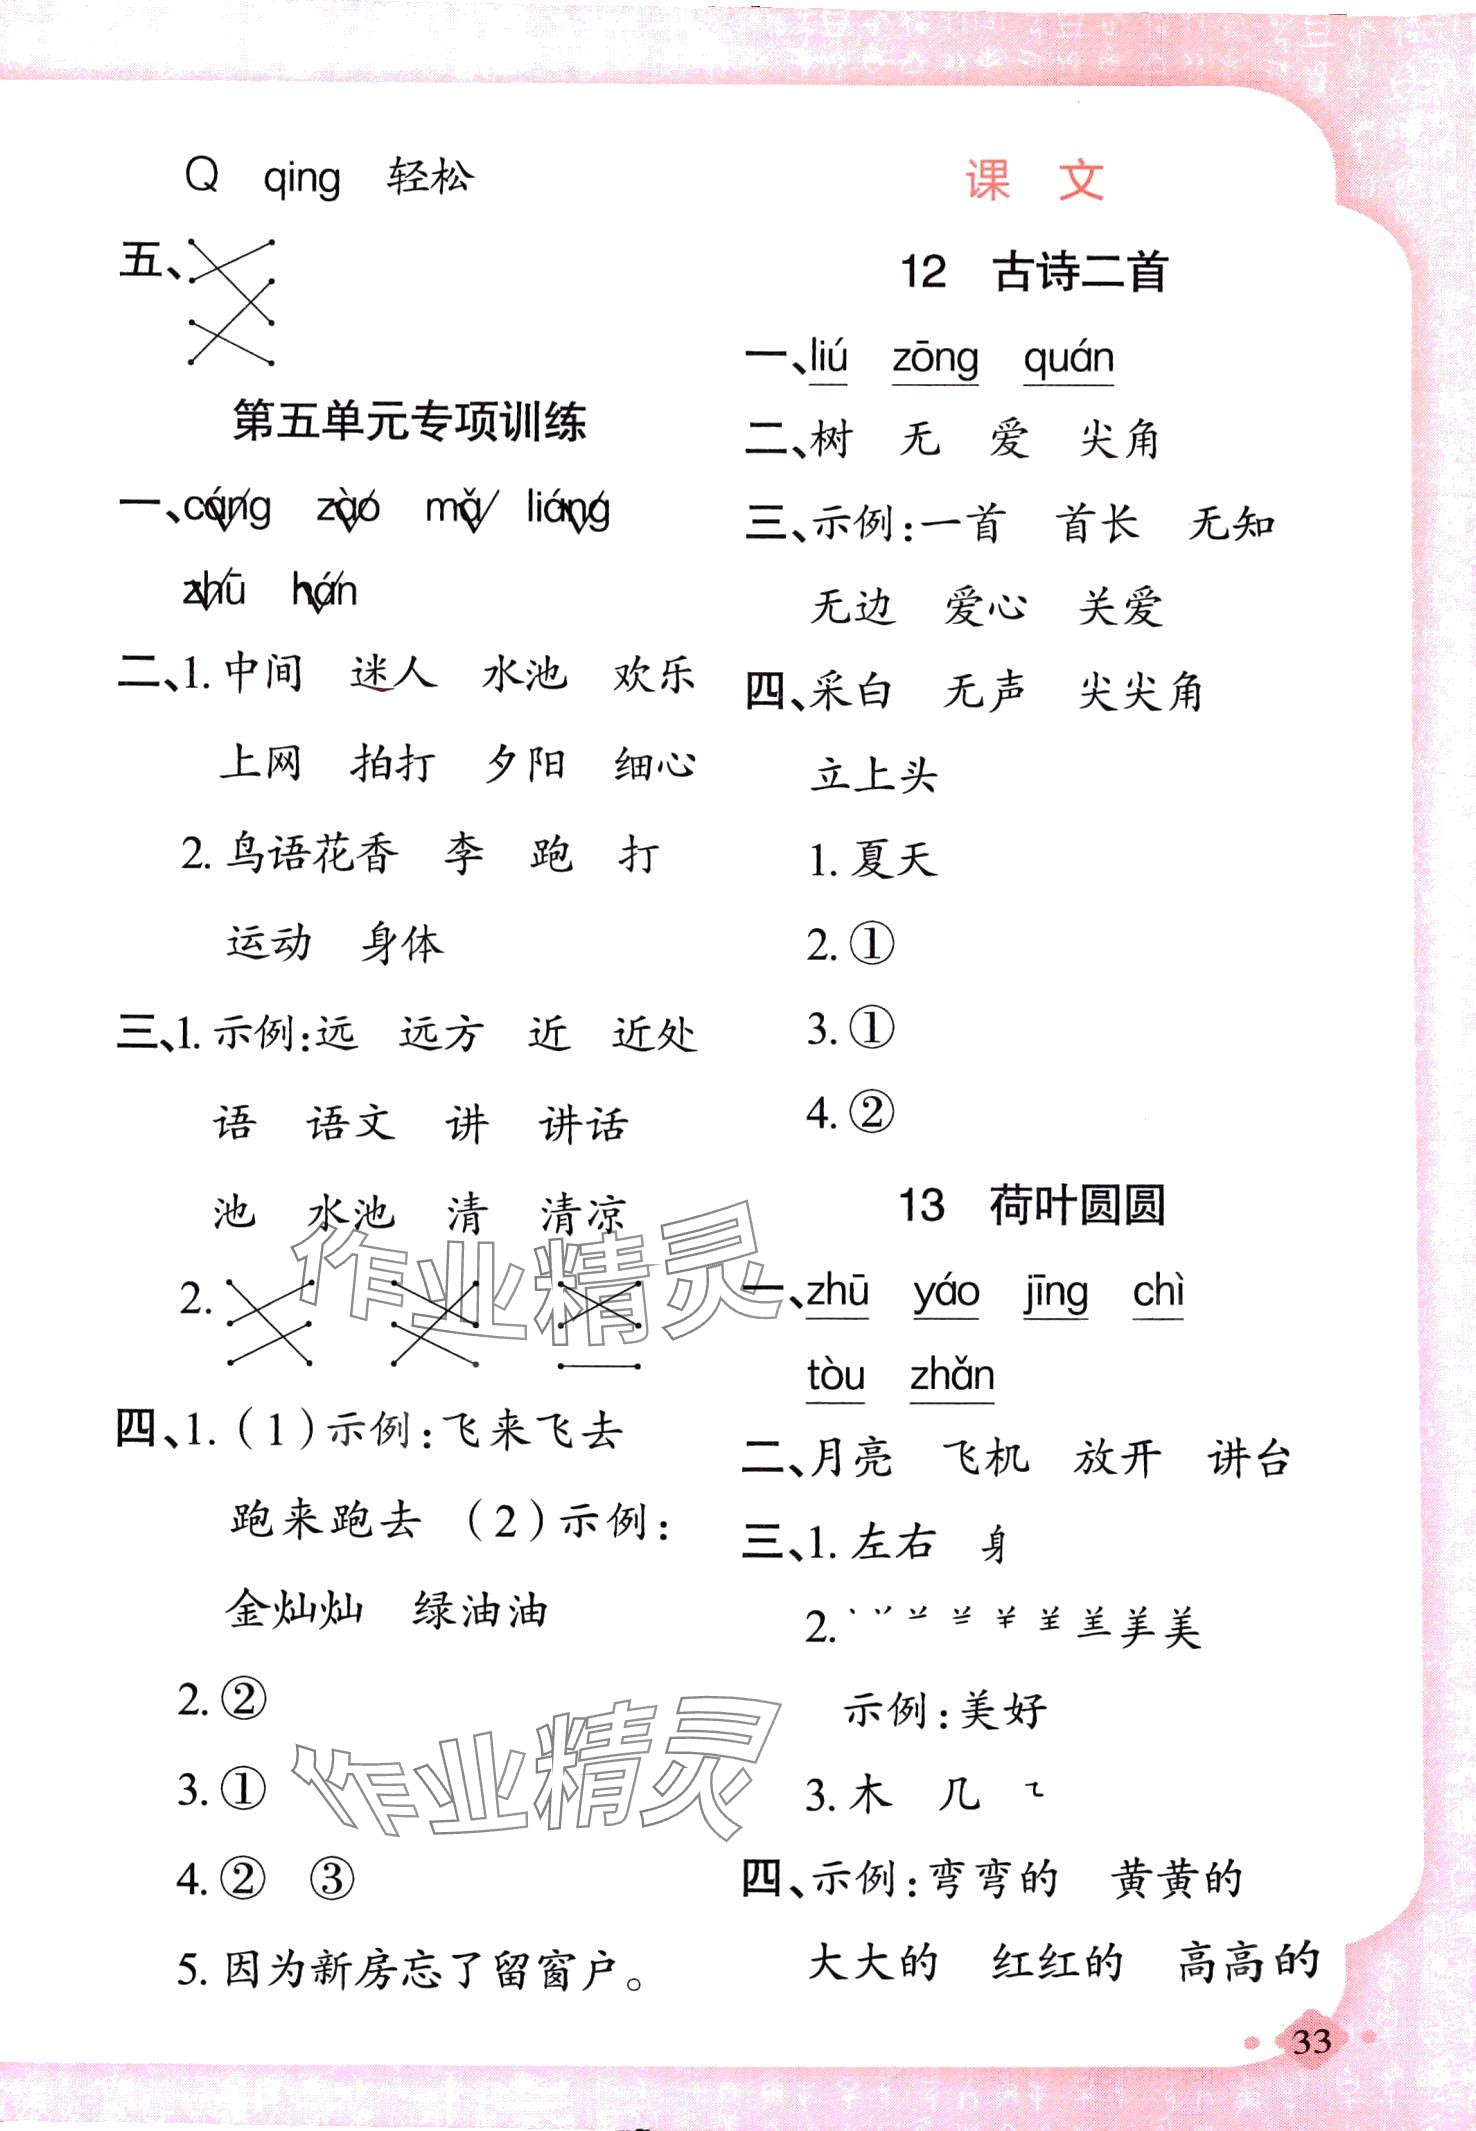 Q qing 轻松
五、
第五单元专项训练
一、cáng zào mǎ liáng
zhū hán
二、1. 中间 迷人 水池 欢乐
上网 拍打 夕阳 细心
2. 鸟语花香 李 跑 打
运动 身体
三、1. 示例:远 远方 近 近处
语 语文 讲 讲话
池 水池 清 清凉
2.
四、1. (1)示例:飞来飞去
跑来跑去 (2)示例:
金灿灿 绿油油
2. ②
3. ①
4. ② ③
5. 因为新房忘了留窗户。
课 文
12 古诗二首
一、liú zōng quán
二、树 无 爱 尖角
三、示例:一首 首长 无知
无边 爱心 关爱
四、采白 无声 尖尖角
立上头
1. 夏天
2. ①
3. ①
4. ②
13 荷叶圆圆
一、zhū yáo jīng chì
tòu zhǎn
二、月亮 飞机 放开 讲台
三、1. 左右 身
2. 美
示例:美好
3. 木 几 ㇈
四、示例:弯弯的 黄黄的
大大的 红红的 高高的
33
作业精灵
作业精灵